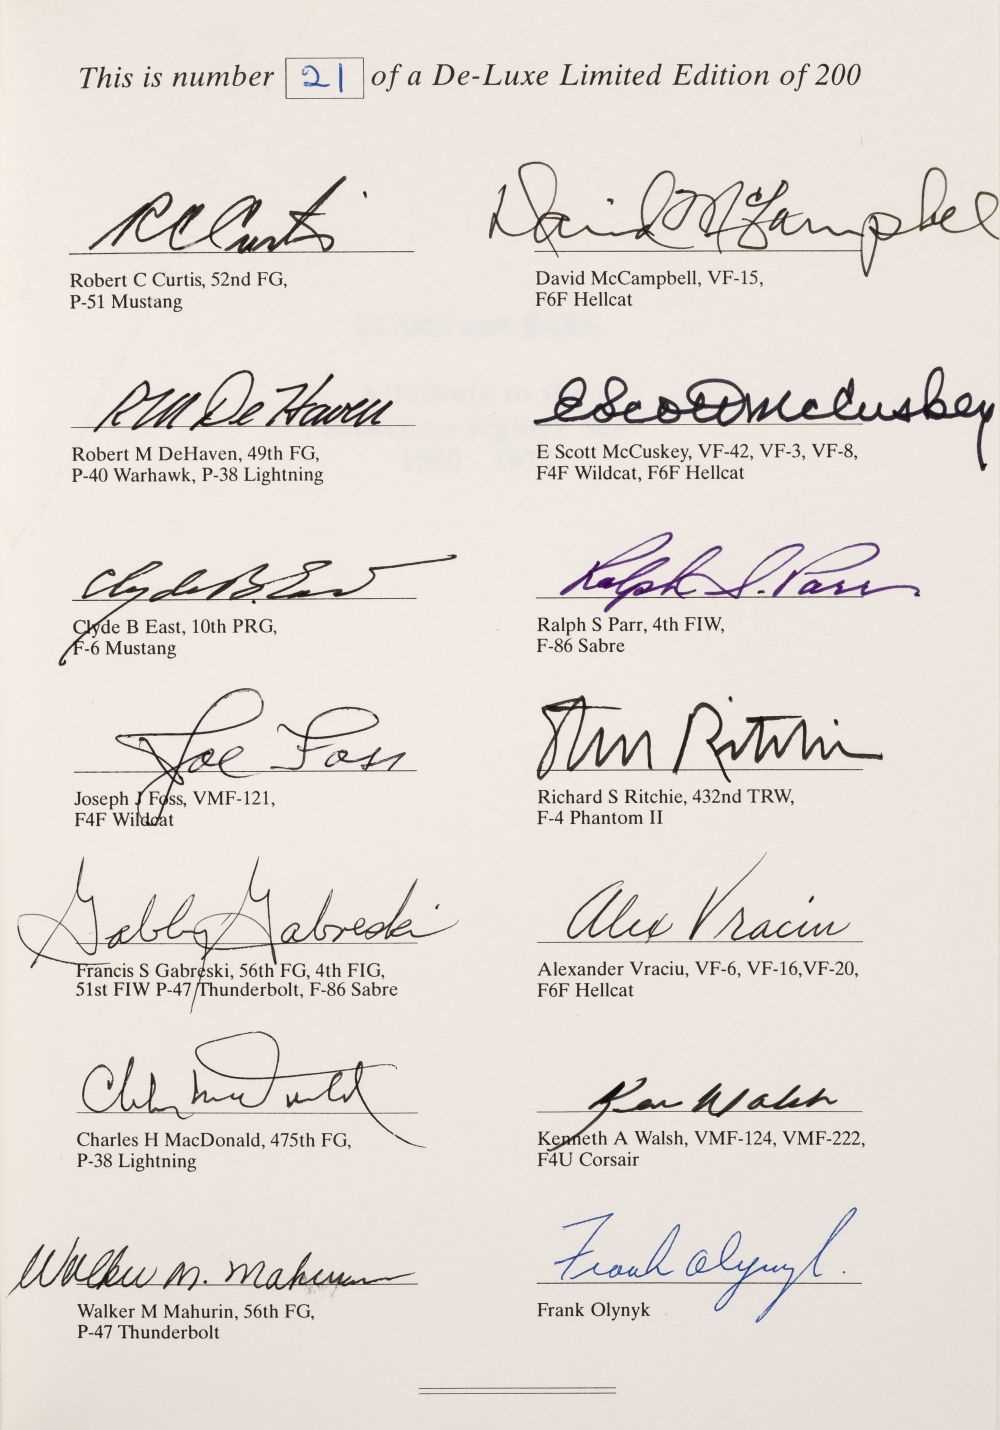 This is number 21 of a De-Luxe Limited Edition of 200
R C Curtis
Robert C Curtis, 52nd FG,
P-51 Mustang
David McCampbell
David McCampbell, VF-15,
F6F Hellcat
R M De Haven
Robert M DeHaven, 49th FG,
P-40 Warhawk, P-38 Lightning
E Scott McCuskey
E Scott McCuskey, VF-42, VF-3, VF-8,
F4F Wildcat, F6F Hellcat
Clyde B. East
Clyde B East, 10th PRG,
F-6 Mustang
Ralph S. Parr
Ralph S Parr, 4th FIW,
F-86 Sabre
Joe Foss
Joseph J Foss, VMF-121,
F4F Wildcat
Steve Ritchie
Richard S Ritchie, 432nd TRW,
F-4 Phantom II
Gabby Gabreski
Francis S Gabreski, 56th FG, 4th FIG,
51st FIW P-47 Thunderbolt, F-86 Sabre
Alex Vraciu
Alexander Vraciu, VF-6, VF-16,VF-20,
F6F Hellcat
Charles H MacDonald, 475th FG,
P-38 Lightning
Ken Walsh
Kenneth A Walsh, VMF-124, VMF-222,
F4U Corsair
Walker M. Mahurin
Walker M Mahurin, 56th FG,
P-47 Thunderbolt
Frank Olynyk.
Frank Olynyk